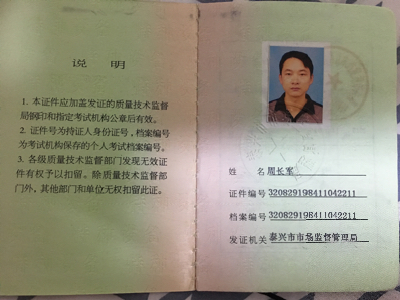 说明
1. 本证件应加盖发证的质量技术监督
局钢印和指定考试机构公章后有效。
2. 证件号为持证人身份证号，档案编号
为考试机构保存的个人考试档案编号。
3. 各级质量技术监督部门发现无效证
件有权予以扣留。除质量技术监督部
门外，其他部门和单位无权扣留此证。
姓 名 周长军
证件编号 320829198411042211
档案编号 320829198411042211
发证机关 泰兴市市场监督管理局